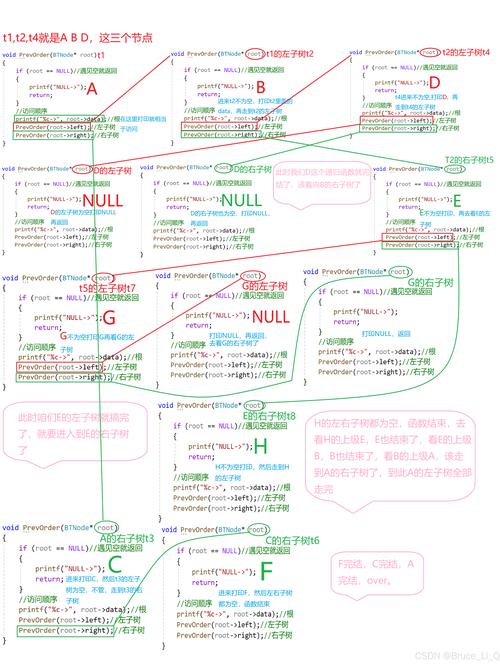 t1,t2,t4就是A B D，这三个节点
void PrevOrder(BTNode* root)t1
{
if (root == NULL)//遇见空就返回
{
printf("NULL->");
return;
}
A
//访问顺序
printf("%c->", root->data);//根
在这里打印就相当于访问
PrevOrder(root->left);//左子树
PrevOrder(root->right);//右子树
}
void PrevOrder(BTNode* root)
t1的左子树t2
{
if (root == NULL)//遇见空就返回
{
printf("NULL->");
return;
}
B
进来t2不为空，打印t2里面的
data，再走到t2的左子树
//访问顺序
printf("%c->", root->data);//根
PrevOrder(root->left);//左子树
PrevOrder(root->right);//右子树
}
void PrevOrder(BTNode* root)
t2的左子树t4
{
if (root == NULL)//遇见空就返回
{
printf("NULL->");
return;
}
D
t4进来不为空,打印D，再
走到t4的左子树
//访问顺序
printf("%c->", root->data);//根
PrevOrder(root->left);//左子树
PrevOrder(root->right);//右子树
}
void PrevOrder(BTNode* root)
D的左子树
{
if (root == NULL)//遇见空就返回
{
printf("NULL->");
return;
}
NULL
D的左子树为空,打印NULL
再返回
//访问顺序
printf("%c->", root->data);//根
PrevOrder(root->left);//左子树
PrevOrder(root->right);//右子树
}
void PrevOrder(BTNode* root)
D的右子树
{
if (root == NULL)//遇见空就返回
{
printf("NULL->");
return;
}
NULL
D的右子树也为空，打印NULL，
再返回
//访问顺序
printf("%c->", root->data);//根
PrevOrder(root->left);//左子树
PrevOrder(root->right);//右子树
}
此时我们D这个递归函数就完
结了，该看向B的右子树了
T2的右子树t5
void PrevOrder(BTNode* root)
{
if (root == NULL)//遇见空就返回
{
printf("NULL->");
return;
}
E
E不为空打印E，再去看E的左
子树
//访问顺序
printf("%c->", root->data);//根
PrevOrder(root->left);//左子树
PrevOrder(root->right);//右子树
}
void PrevOrder(BTNode* root)
t5的左子树t7
{
if (root == NULL)//遇见空就返回
{
printf("NULL->");
return;
}
G
G不为空打印G再看G的左
子树
//访问顺序
printf("%c->", root->data);//根
PrevOrder(root->left);//左子树
PrevOrder(root->right);//右子树
}
void PrevOrder(BTNode* root)
G的左子树
{
if (root == NULL)//遇见空就返回
{
printf("NULL->");
return;
}
NULL
打印NULL，再返回，
去看G的右子树了
//访问顺序
printf("%c->", root->data);//根
PrevOrder(root->left);//左子树
PrevOrder(root->right);//右子树
}
void PrevOrder(BTNode* root)
G的右子树
{
if (root == NULL)//遇见空就返回
{
printf("NULL->");
return;
}
打印NULL，返回
//访问顺序
printf("%c->", root->data);//根
PrevOrder(root->left);//左子树
PrevOrder(root->right);//右子树
}
此时咱们E的左子树就搞完
了，就要进入到E的右子树
了
void PrevOrder(BTNode* root)
E的右子树t8
{
if (root == NULL)//遇见空就返回
{
printf("NULL->");
return;
}
H
H不为空打印，然后走到H
的左子树
//访问顺序
printf("%c->", root->data);//根
PrevOrder(root->left);//左子树
PrevOrder(root->right);//右子树
}
H的左右子树都为空，函数结束，去
看H的上级E，E也结束了，看E的上级
B，B也结束了，看B的上级A，该走
到A的右子树了，到此A的左子树全部
走完
void PrevOrder(BTNode* root)
A的右子树t3
{
if (root == NULL)//遇见空就返回
{
printf("NULL->");
return;
}
C
进来打印C，然后t3的左子
树为空，不管，走到t3的右
子树
//访问顺序
printf("%c->", root->data);//根
PrevOrder(root->left);//左子树
PrevOrder(root->right);//右子树
}
void PrevOrder(BTNode* root)
C的右子树t6
{
if (root == NULL)//遇见空就返回
{
printf("NULL->");
return;
}
F
进来打印F，然后左右子树
都为空，函数结束
//访问顺序
printf("%c->", root->data);//根
PrevOrder(root->left);//左子树
PrevOrder(root->right);//右子树
}
F完结，C完结，A
完结，over。
CSDN @Bruce_Li_Q